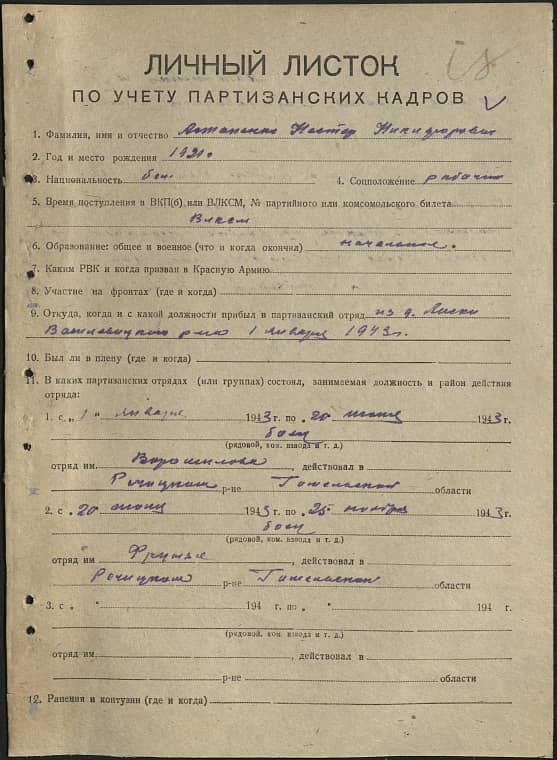 18
ЛИЧНЫЙ ЛИСТОК
ПО УЧЕТУ ПАРТИЗАНСКИХ КАДРОВ
1. Фамилия, имя и отчество Астапенко Нестер Никифорович
2. Год и место рождения 1921 г.
3. Национальность бел. 4. Соцположение рабочий
5. Время поступления в ВКП(б) или ВЛКСМ, № партийного или комсомольского билета
Влксм
6. Образование: общее и военное (что и когда окончил) начальное.
7. Каким РВК и когда призван в Красную Армию
8. Участие на фронтах (где и когда)
9. Откуда, когда и с какой должности прибыл в партизанский отряд из д. Лиски
Василевицкого р-на 1 января 1943 г.
10. Был ли в плену (где и когда)
11. В каких партизанских отрядах (или группах) состоял, занимаемая должность и район действия
отряда:
1. с „ 1 " января 1943 г. по „ 20 июня 1943 г.
боец
(рядовой, ком. взвода и т. д.)
отряд им. Ворошилова, действовал в
Речицком р-не Гомельской области
2. с „ 20 июня 1943 г. по „ 25 ноября 1943 г.
боец
(рядовой, ком. взвода и т. д.)
отряд им. Фрунзе, действовал в
Речицком р-не Гомельской области
3. с „ " 194 г. по „ " 194 г.
(рядовой, ком. взвода и т. д.)
отряд им. , действовал в
р-не области
12. Ранения и контузии (где и когда)